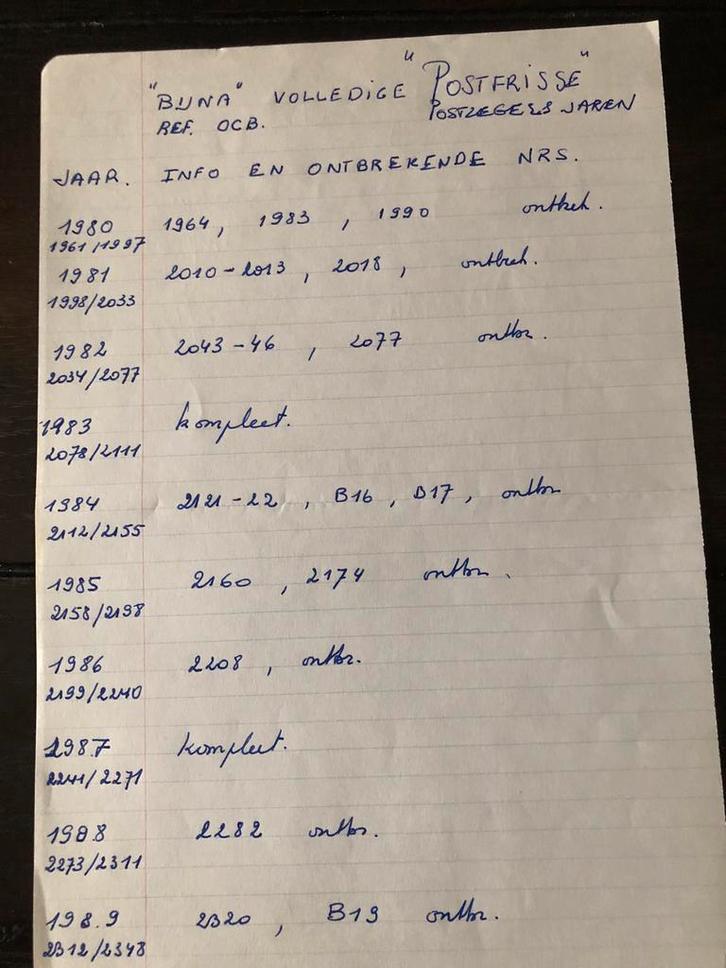 "BIJNA" VOLLEDIGE "POSTFRISSE"
REF. OCB. POSTZEGELS JAREN
JAAR. INFO EN ONTBREKENDE NRS.
1980 1964, 1983, 1990 ontbreh.
1961/1997
1981 2010-2013, 2018, ontbreh.
1998/2033
1982 2043-46, 2077 ontbr.
2034/2077
1983 kompleet.
2078/2111
1984 2121-22, B16, B17, ontbr
2112/2155
1985 2160, 2174 ontbr.
2158/2198
1986 2208, ontbr.
2199/2240
1987 kompleet.
2241/2271
1988 2282 ontbr.
2273/2311
1989 2320, B19 ontbr.
2312/2348